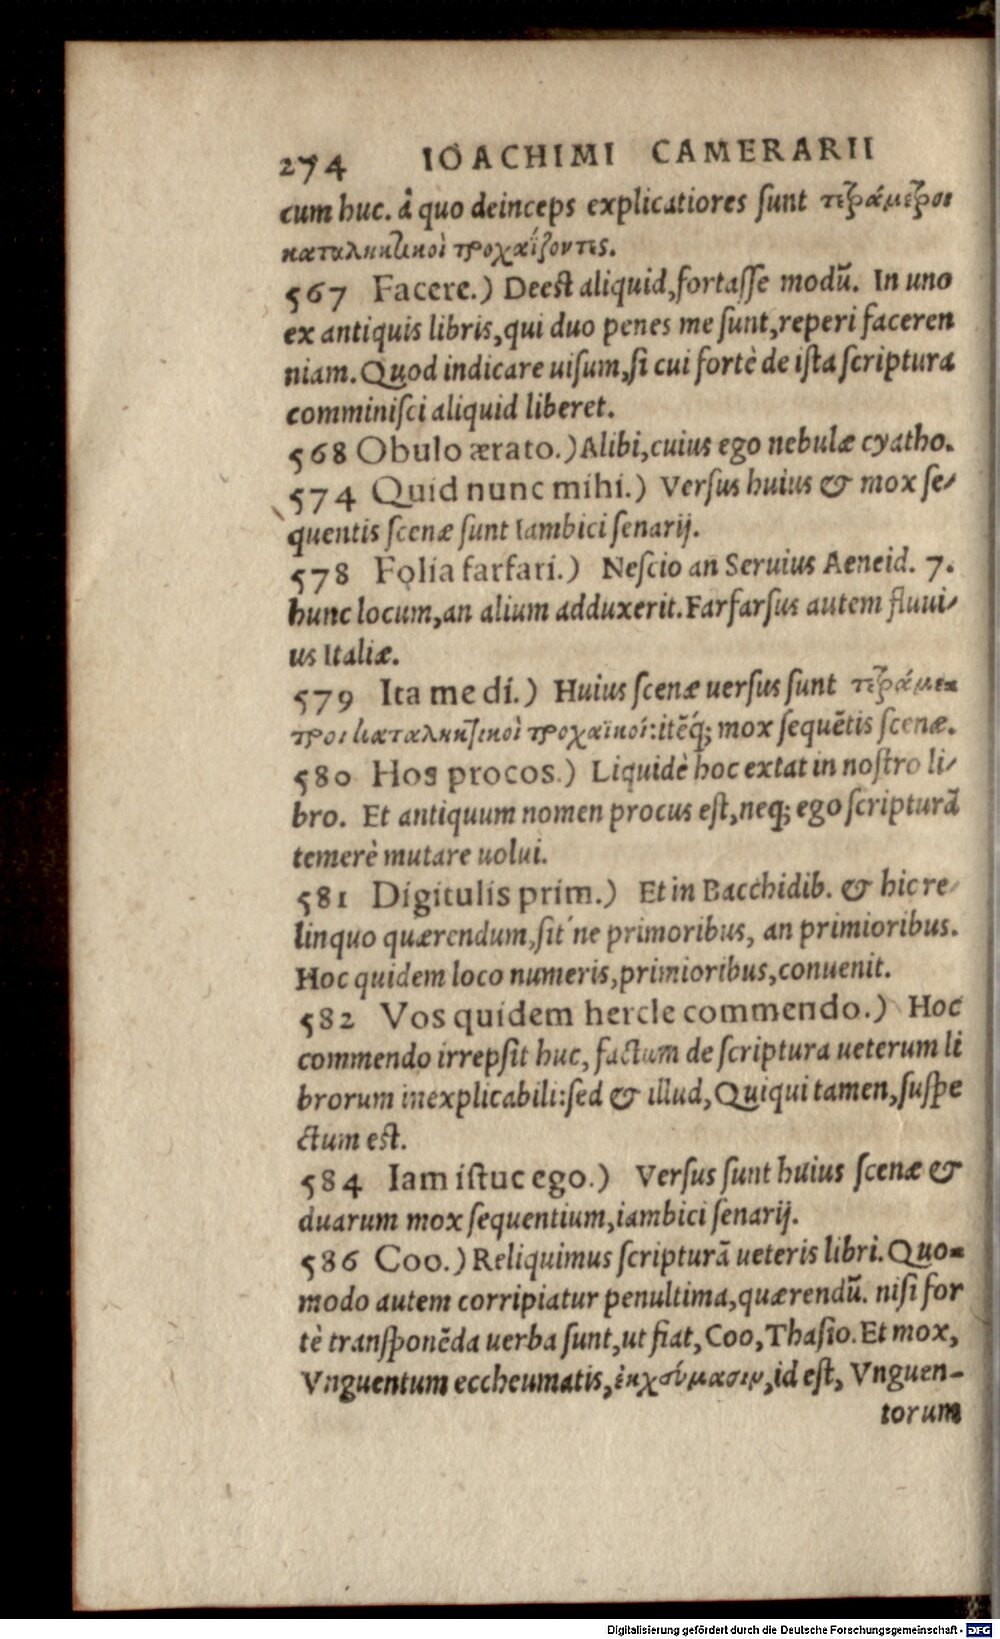 274 IOACHIMI CAMERARII
cum huc. à quo deinceps explicatiores sunt τετράμετροι
καταληκτικοὶ τροχαΐζοντες.
567 Facere.) Deest aliquid, fortasse modũ. In uno
ex antiquis libris, qui duo penes me sunt, reperi faceren
niam. Quod indicare uisum, si cui fortè de ista scriptura
comminisci aliquid liberet.
568 Obulo ærato.) Alibi, cuius ego nebulæ cyatho.
574 Quid nunc mihi.) Versus huius & mox se/
quentis scenæ sunt Iambici senarij.
578 Folia farfari.) Nescio an Seruius Aeneid. 7.
hunc locum, an alium adduxerit. Farfarsus autem fluui/
us Italiæ.
579 Ita me dí.) Huius scenæ uersus sunt τετράμε-
τροι καταληκτικοὶ τροχαϊκοί: itẽq́; mox sequẽtis scenæ.
580 Hos procos.) Liquidè hoc extat in nostro li/
bro. Et antiquum nomen procus est, neq; ego scripturã
temerè mutare uolui.
581 Digitulis prim.) Et in Bacchidib. & hic re/
linquo quærendum, sit´ne primoribus, an primioribus.
Hoc quidem loco numeris, primioribus, conuenit.
582 Vos quidem hercle commendo.) Hoc
commendo irrepsit huc, factum de scriptura ueterum li
brorum inexplicabili: sed & illud, Quiqui tamen, suspe
ctum est.
584 Iam istuc ego.) Versus sunt huius scenæ &
duarum mox sequentium, iambici senarij.
586 Coo.) Reliquimus scripturã ueteris libri. Quo-
modo autem corripiatur penultima, quærendũ. nisi for
tè transponẽda uerba sunt, ut fiat, Coo, Thasio. Et mox,
Vnguentum eccheumatis, ἐκχύμασιν, id est, Vnguen-
torum
Digitalisierung gefördert durch die Deutsche Forschungsgemeinschaft - DFG